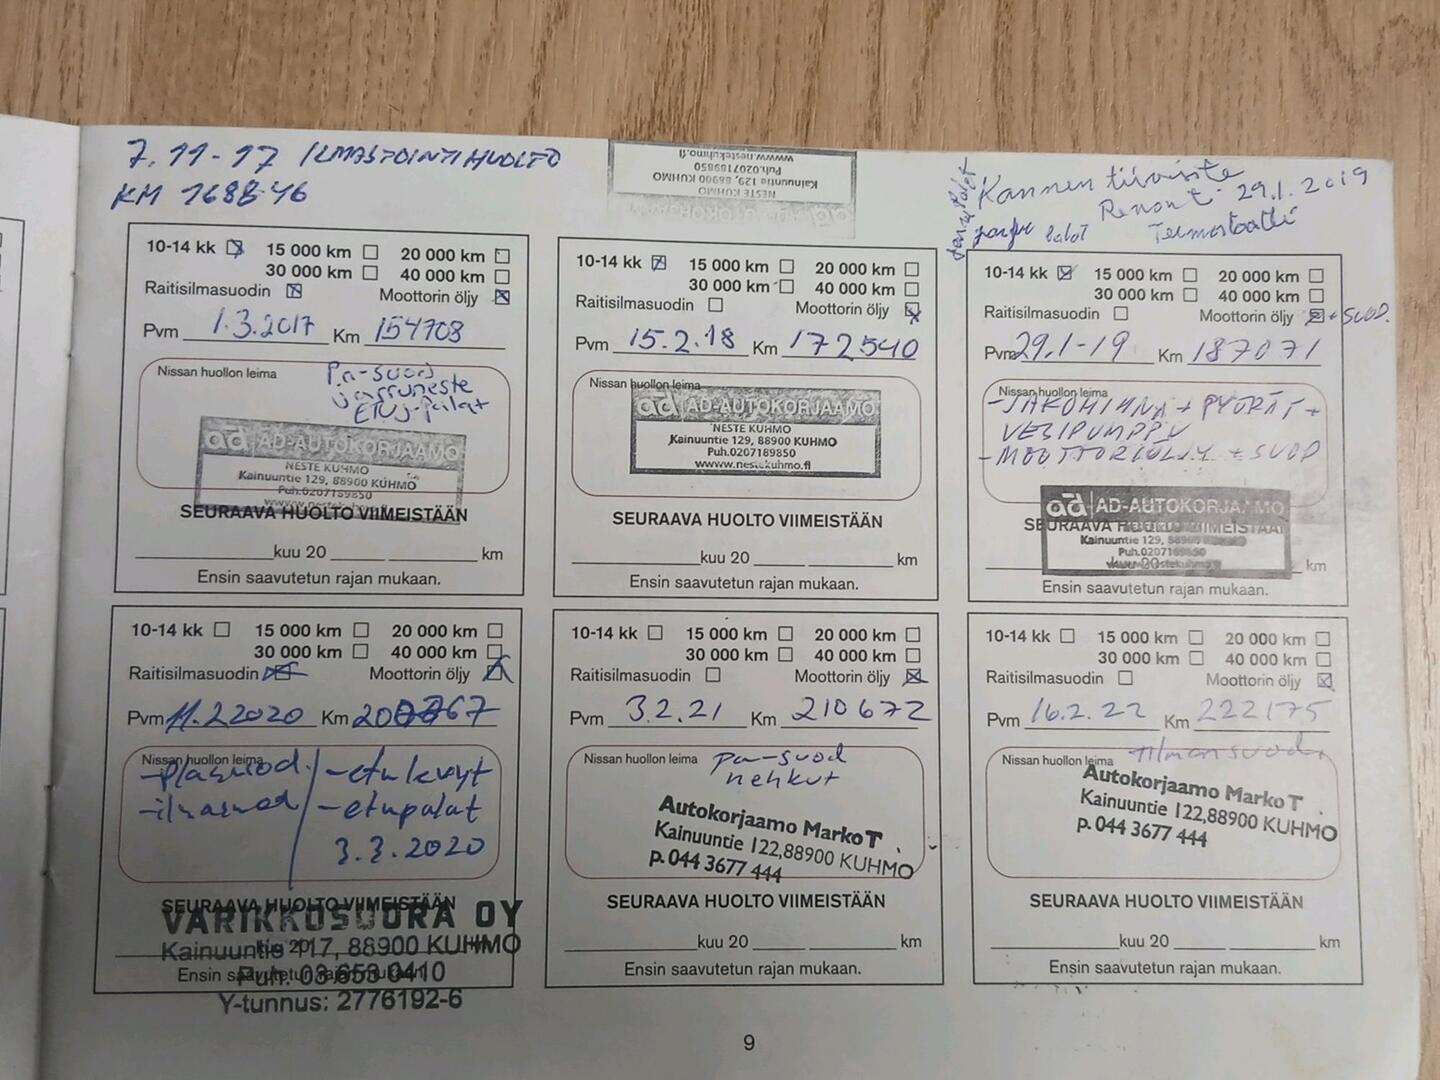 7.11-17 ILMASTOINTIHUOLTO
KM 168846
www.nestekuhmo.fi
Puh.0207189850
Kainuuntie 129, 88900 KUHMO
NESTE KUHMO
ad AD-AUTOKORJAAMO
Kannen tiiviste
Remont 29.1.2019
Termostaatti
10-14 kk 15 000 km 20 000 km
30 000 km 40 000 km
Raitisilmasuodin Moottorin öljy
Pvm 1.3.2017 Km 154708
Nissan huollon leima
Pa-suod
jarruneste
ETUJ-palat
ad AD-AUTOKORJAAMO
NESTE KUHMO
Kainuuntie 129, 88900 KUHMO
Puh.0207189850
SEURAAVA HUOLTO VIIMEISTÄÄN
kuu 20 km
Ensin saavutetun rajan mukaan.
10-14 kk 15 000 km 20 000 km
30 000 km 40 000 km
Raitisilmasuodin Moottorin öljy
Pvm 15.2.18 Km 172540
Nissan huollon leima
ad AD-AUTOKORJAAMO
NESTE KUHMO
Kainuuntie 129, 88900 KUHMO
Puh.0207189850
www.nestekuhmo.fi
SEURAAVA HUOLTO VIIMEISTÄÄN
kuu 20 km
Ensin saavutetun rajan mukaan.
10-14 kk 15 000 km 20 000 km
30 000 km 40 000 km
Raitisilmasuodin Moottorin öljy + SUOD.
Pvm 29.1-19 Km 187071
Nissan huollon leima
-JAKOHIHNA + PYÖRÄT +
VESIPUMPPU
-MOOTTORIÖLJY + SUOD
ad AD-AUTOKORJAAMO
SEURAAVA HUOLTO VIIMEISTÄÄN
Kainuuntie 129, 88900 KUHMO
Puh.0207189850
kuu 20 km
Ensin saavutetun rajan mukaan.
10-14 kk 15 000 km 20 000 km
30 000 km 40 000 km
Raitisilmasuodin Moottorin öljy
Pvm 11.2.2020 Km
Nissan huollon leima
-etukvyt
-ilmasuod -etupalat
3.3.2020
SEURAAVA HUOLTO VIIMEISTÄÄN
VARIKKOSUORA OY
Kainuuntie 117, 88900 KUHMO
Ensin saavutetun rajan mukaan.
Puh. 08 653 0410
Y-tunnus: 2776192-6
10-14 kk 15 000 km 20 000 km
30 000 km 40 000 km
Raitisilmasuodin Moottorin öljy
Pvm 3.2.21 Km 210672
Nissan huollon leima
pa-suod
hehkut
Autokorjaamo Marko T
Kainuuntie 122,88900 KUHMO
p. 044 3677 444
SEURAAVA HUOLTO VIIMEISTÄÄN
kuu 20 km
Ensin saavutetun rajan mukaan.
10-14 kk 15 000 km 20 000 km
30 000 km 40 000 km
Raitisilmasuodin Moottorin öljy
Pvm 16.2.22 Km 222175
Nissan huollon leima
ilmansuod.
Autokorjaamo Marko T
Kainuuntie 122,88900 KUHMO
p. 044 3677 444
SEURAAVA HUOLTO VIIMEISTÄÄN
kuu 20 km
Ensin saavutetun rajan mukaan.
9